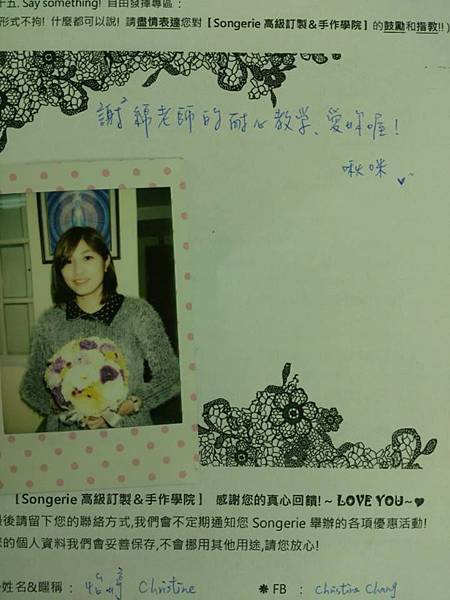 十五. Say something! 自由發揮專區：
形式不拘! 什麼都可以說! 請盡情表達您對【Songerie 高級訂製＆手作學院】的鼓勵和指教!!)
謝謝錦老師的耐心教學、愛妳喔！
啾咪
【Songerie 高級訂製＆手作學院】 感謝您的真心回饋!~ LOVE YOU~♥
最後請留下您的聯絡方式,我們會不定期通知您 Songerie 舉辦的各項優惠活動!
您的個人資料我們會妥善保存,不會挪用其他用途,請您放心!
姓名&暱稱： 怡婷 Christine ✱FB： Christine Chang